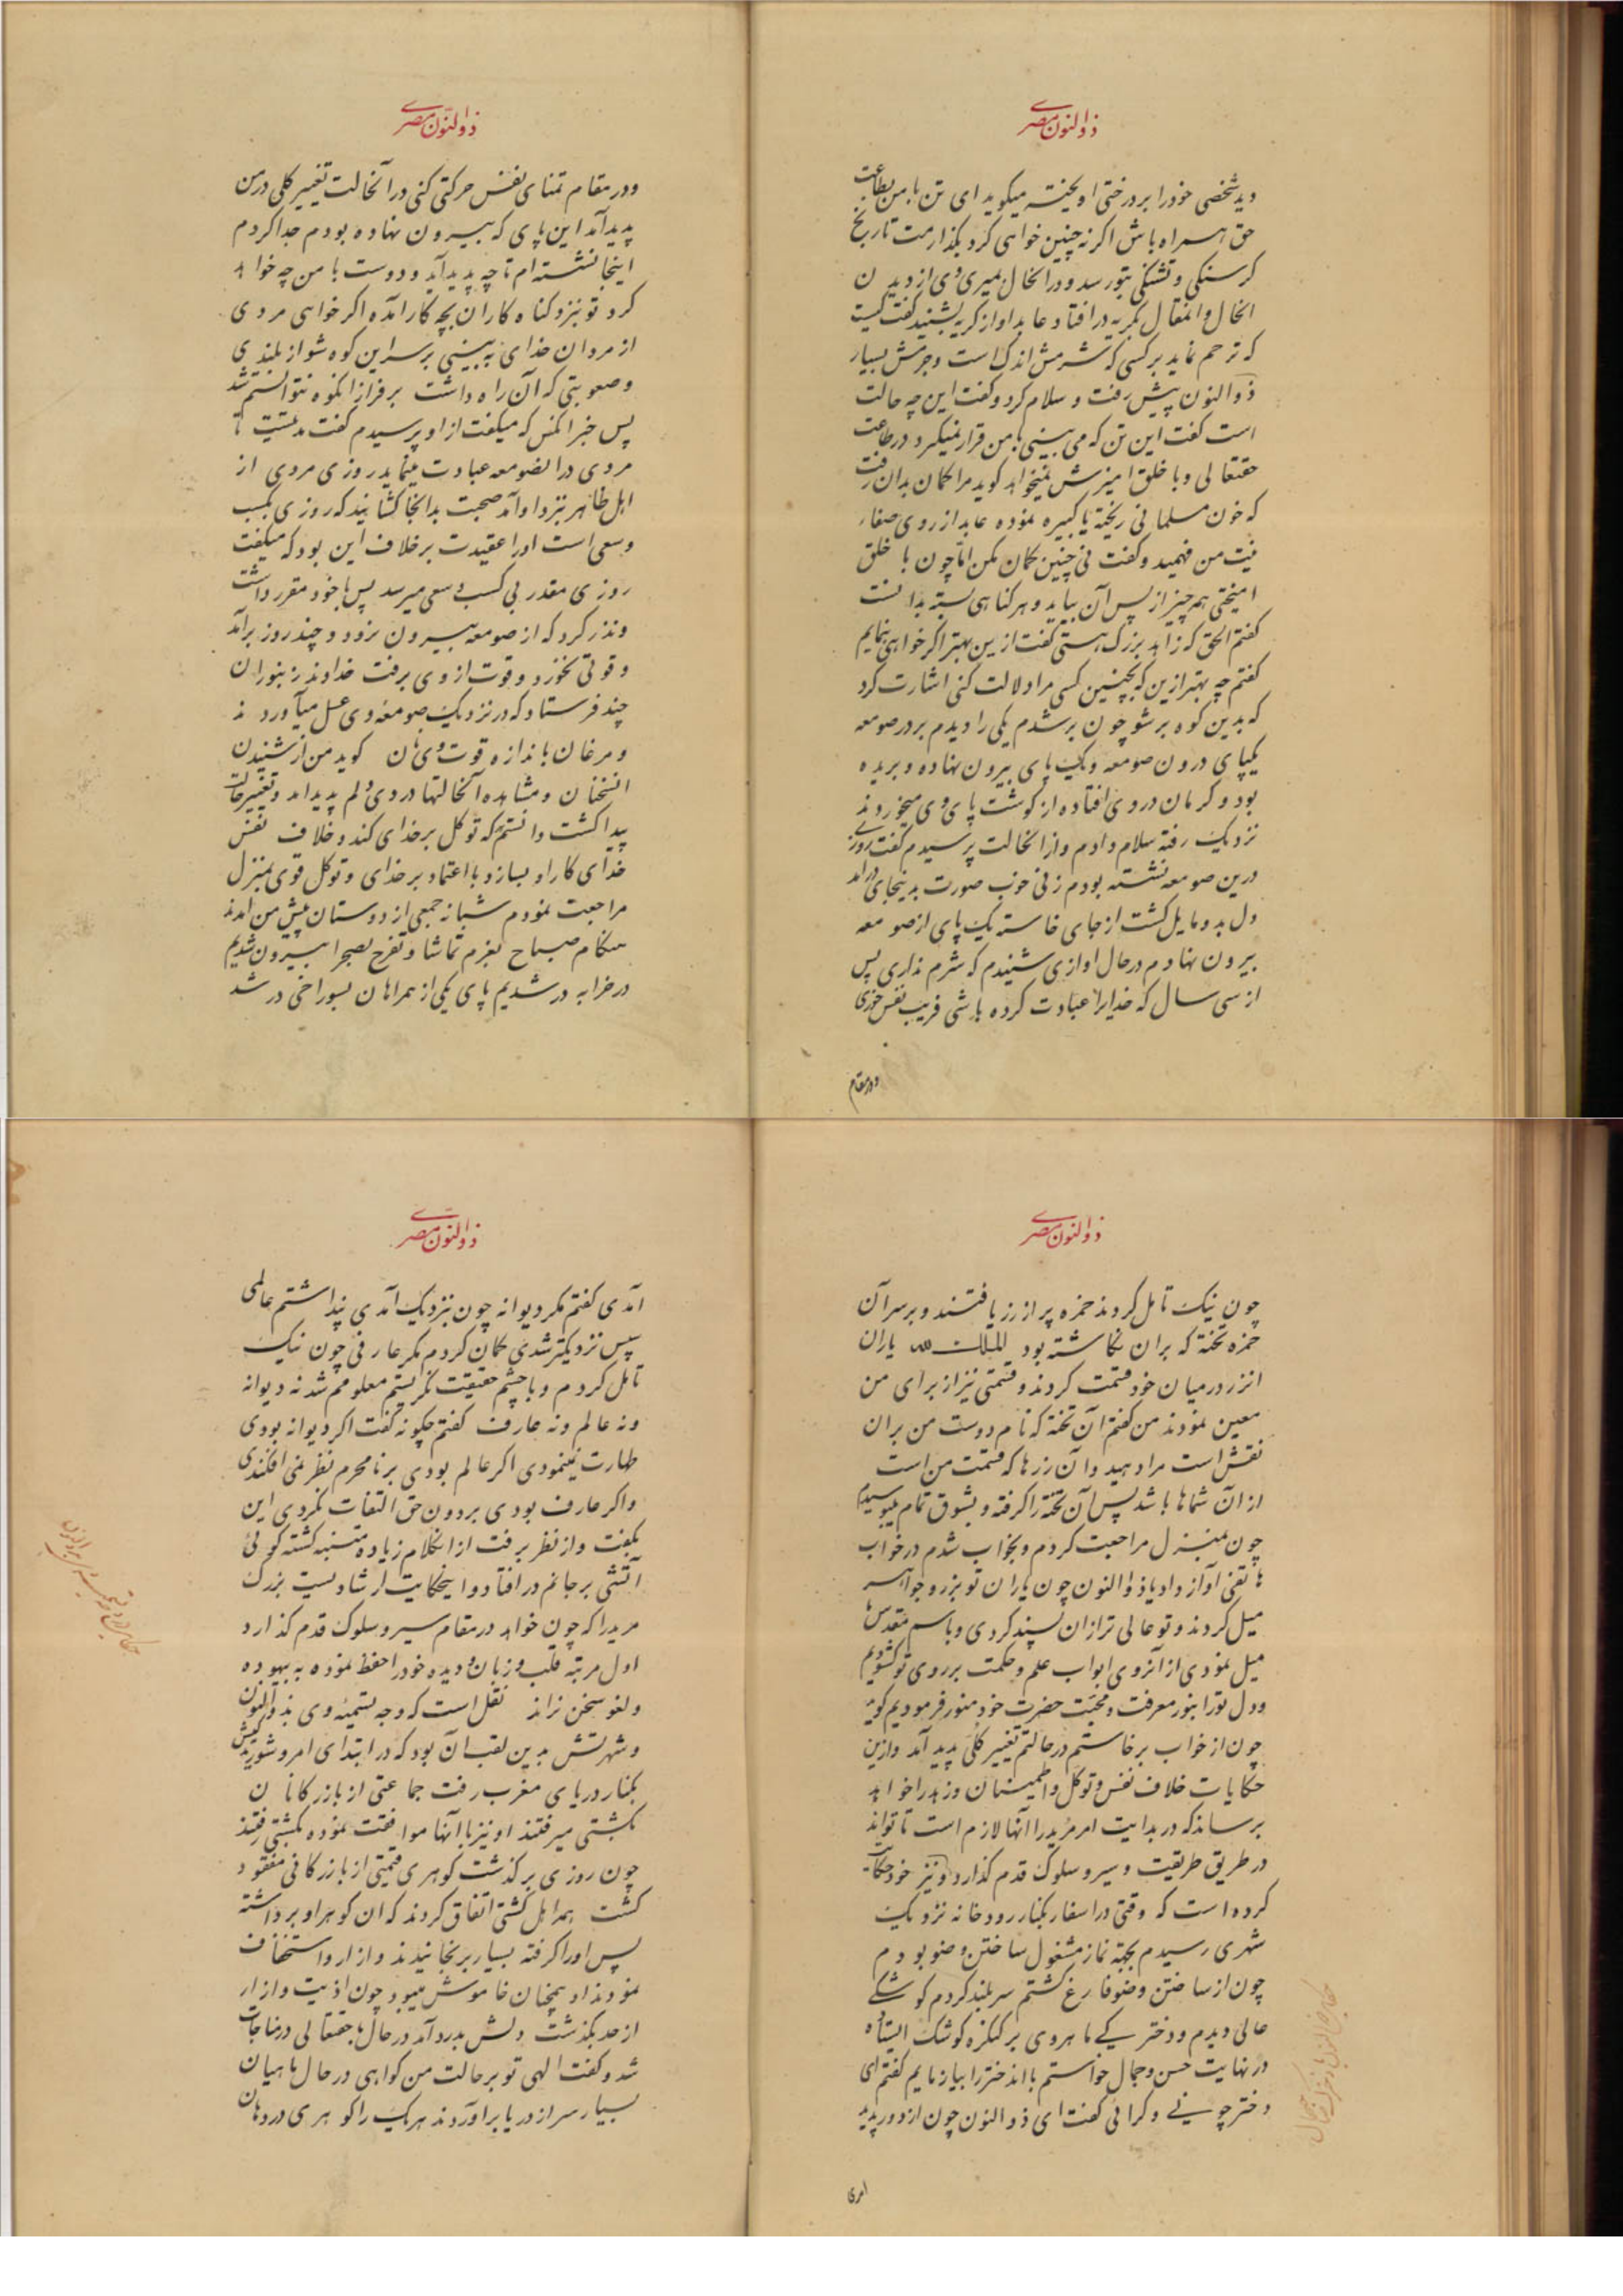 ذوالنون مصری
دید شخصی خود را بر درختی اویخته میکوید ای تن با من بطاعت
حق همراه باش اکر نه چنین خواهی کرد بگذارمت تا رنج
کرسنکی و تشنکی بتو رسد و در انحال بمیری وی از دیدن
انحال و انمقال بکریه در افتاد عابد اواز کریه بشنید کفت کیست
که ترحم نماید بر کسی که شرمش اندک است و جرمش بسیار
ذوالنون پیش رفت و سلام کرد و کفت این چه حالت
است کفت این تن که می بینی با من قرار نمیکیرد در طاعت
حقتعالی و با خلق امیزش میخواهد کوید مرا کمان بدان رفت
که خون مسلمانی ریخته یا کبیره نموده عابد از روی صفاء
نیت من فهمید و کفت نی چنین کمان مکن اما چون با خلق
امیختی همه چیز از پس آن بیاید و هر کناهی بسته بدانست
کفتم الحق که زاهد بزرک هستی کفت ازین بهتر اکر خواهی بنمایم
کفتم چه بهتر ازین که بچنین کسی مرا دلالت کنی اشارت کرد
که بدین کوه بر شو چون بر شدم یکی را دیدم بر در صومعه
یکپای درون صومعه و یک پای بیرون نهاده و بریده
بود و کرمان در وی افتاده از کوشت پای وی میخوردند
نزدیک رفته سلام دادم و از انحالت پرسیدم کفت روزی
درین صومعه نشسته بودم زنی خوب صورت بدینجای در امد
دل بدو مایل کشت از جای خاسته یک پای از صومعه
بیرون نهادم در حال اوازی شنیدم که شرم نداری پس
از سی سال که خدایرا عبادت کرده باشی فریب نفس خوری
و در مقام
ذوالنون مصری
و در مقام تمنای نفس حرکتی کنی در آنحالت تغییر کلی در من
پدید آمد این پای که بیرون نهاده بودم جدا کردم
اینجا نشسته ام تا چه پدید آید و دوست با من چه خواهد
کرد تو نزد کناه کاران بچه کار آمده اکر خواهی مردی
از مردان خدای به بینی بر سر این کوه شو از بلندی
و صعوبتی که آن راه داشت بر فراز انکوه نتوانستم شد
پس خبر انکس که میکفت از او پرسیدم کفت مدتیست تا
مردی در انصومعه عبادت مینماید روزی مردی از
اهل ظاهر نزد او آمد صحبت بدانجا کشانید که روزی بکسب
و سعی است او را عقیدت بر خلاف این بود که میکفت
روزی مقدر بی کسب و سعی میرسد پس با خود مقرر داشت
و نذر کرد که از صومعه بیرون نرود و چند روز بر آمد
و قوتی نخورد و قوت از وی برفت خداوند زنبوران
چند فرستاد که در نزدیک صومعه وی عسل میآوردند
و مرغان باندازه قوت وی نان کوید من از شنیدن
انسخنان و مشاهده آنحالتها دردی در دلم پدید امد و تغییر حالت
پیدا کشت دانستم که توکل بر خدای کند و خلاف نفس
خدای کار او بسازد با اعتماد بر خدای و توکل قوی بمنزل
مراجعت نمودم شبانه جمعی از دوستان پیش من امدند
هنکام صباح بعزم تماشا و تفرج بصحرا بیرون شدیم
در خرابه در شدیم پای یکی از همراهان بسوراخی در شد
ذوالنون مصری
چون نیک تامل کردند خمره پر از زر یافتند و بر سر آن
خمره تخته که بران نکاشته بود الملک لله یاران
انزر در میان خود قسمت کردند و قسمتی نیز از برای من
معین نمودند من کفتم آن تخته که نام دوست من بران
نقش است مرا دهید و آن زرها که قسمت من است
از ان شماها باشد پس آن تخته را کرفته و بشوق تمام میبوسیدم
چون بمنزل مراجعت کردم و بخواب شدم در خواب
هاتفی آواز داد یا ذوالنون چون یاران تو بزر و جواهر
میل کردند و تو عالی تر از ان پسند کردی و باسم مقدس ما
میل نمودی از آنروی ابواب علم و حکمت بر روی تو کشودیم
و دل تو را بنور معرفت و محبت حضرت خود منور فرمودیم کوید
چون از خواب بر خاستم در حالتم تغییر کلی پدید آمد و ازین
حکایات خلاف نفس و توکل و اطمینان و زهد را خواهد
برساند که در بدایت امر مرید را آنها لازم است تا تواند
در طریق طریقت و سیر و سلوک قدم کذارد و نیز خود حکایت
کرده است که وقتی در اسفار بکنار رودخانه نزدیک
شهری رسیدم بجهة نماز مشغول ساختن وضو بودم
چون از ساختن وضو فارغ کشتم سر بلند کردم کوشکی
عالی دیدم و دخترکی ماهروی بر کنکره کوشک ایستاده
در نهایت حسن و جمال خواستم تا اندختر را بیازمایم کفتم ای
دختر چونی و کرائی کفت ای ذوالنون چون از دور پدید
امدی
ذوالنون مصری
آمدی کفتم مکر دیوانه چون نزدیک آمدی پنداشتم عالمی
سپس نزدیکتر شدی کمان کردم مکر عارفی چون نیک
تامل کردم و با چشم حقیقت نکریستم معلومم شد نه دیوانه
و نه عالم و نه عارف کفتم چکونه کفت اکر دیوانه بودی
طهارت نمینمودی اکر عالم بودی بر نامحرم نظر نمی افکندی
و اکر عارف بودی بر دون حق التفات نکردی این
بکفت و از نظر برفت از انکلام زیاده متنبه کشته کوئی
آتشی بر جانم در افتاد و اینحکایت ارشادیست بزرک
مرید را که چون خواهد در مقام سیر و سلوک قدم کذارد
اول مرتبه قلب و زبان و دیده خود را حفظ نموده به بیهوده
و لغو سخن نراند نقل است که وجه تسمیه وی بذوالنون
و شهرتش بدین لقب آن بود که در ابتدای امر و شوریدکیش
بکنار دریای مغرب رفت جماعتی از بازرکانان
بکشتی میرفتند او نیز با آنها موافقت نموده بکشتی رفتند
چون روزی بر کذشت کوهری قیمتی از بازرکانی مفقود
کشت همه اهل کشتی اتفاق کردند که ان کوهر او برداشته
پس او را کرفته بسیار برنجانیدند و ازار و استخفاف
نمودند او همچنان خاموش میبود چون اذیت و ازار
از حد بکذشت دلش بدرد آمد در حال با حقتعالی در مناجات
شد و کفت الهی تو بر حالت من کواهی در حال ماهیان
بسیار سر از دریا بر آوردند هر یک را کوهری در دهان